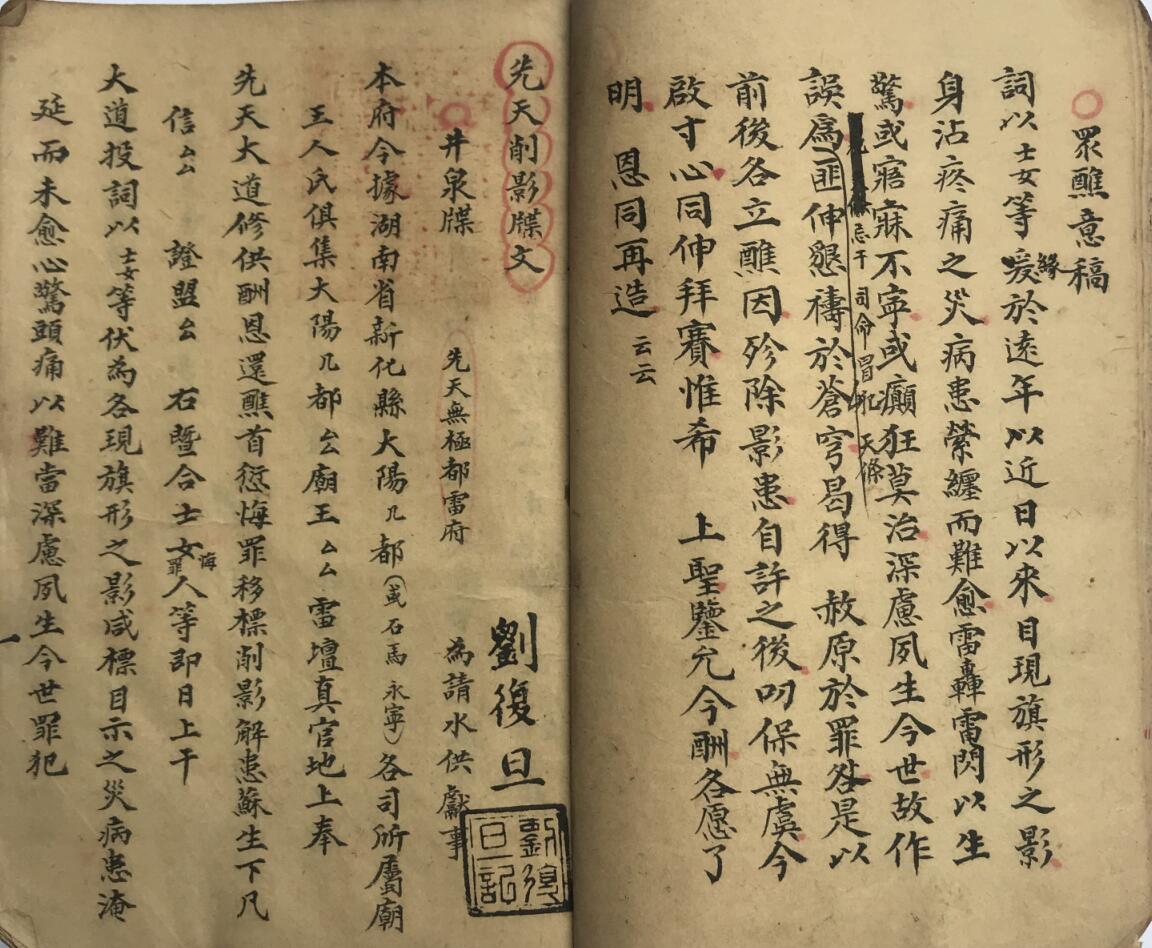 眾醮意稿
詞以士女等爰緣於遠年以近日以來目現旗形之影
身沾疼痛之災病患縈纏而難愈雷轟電閃以生
驚或寤寐不寧或癲狂莫治深慮夙生今世故作
忌干司命冒犯天條
誤為匪伸懇禱於蒼穹曷得 赦原於罪咎是以
前後各立醮因殄除影患自許之後叨保無虞今
啟寸心同伸拜賽惟希 上聖鑒允今酬各愿了
明 恩同再造云云
先天削影牒文 劉復旦
井泉牒 先天無極都雷府 為請水供獻事
劉復旦記
本府今據湖南省新化縣大陽几都(或石馬永寧)各司所屬廟
王人氏俱集大陽几都厶廟王厶厶雷壇真官地上奉
先天大道修供酬恩還醮首愆悔罪移標削影解患蘇生下凡
信厶厶 證盟厶 右暨合士女海罪人等即日上干
大道投詞以士女等伏為各現旗形之影咸標目示之災病患淹
延而未愈心驚頭痛以難當深慮夙生今世罪犯